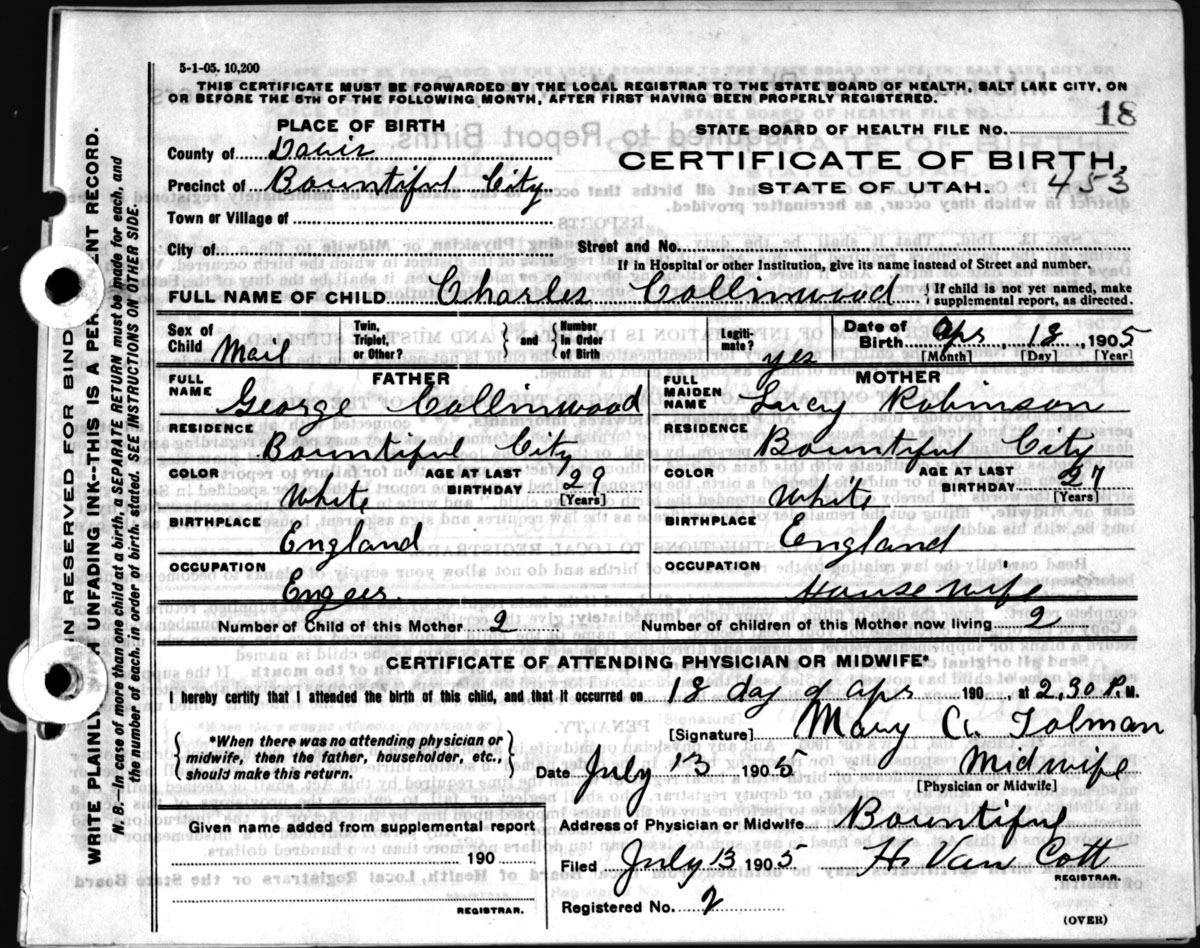 5-1-05. 10,200
THIS CERTIFICATE MUST BE FORWARDED BY THE LOCAL REGISTRAR TO THE STATE BOARD OF HEALTH, SALT LAKE CITY, ON
OR BEFORE THE 5TH OF THE FOLLOWING MONTH, AFTER FIRST HAVING BEEN PROPERLY REGISTERED.
PLACE OF BIRTH
STATE BOARD OF HEALTH FILE NO. 18
County of Davis
CERTIFICATE OF BIRTH,
Precinct of Bountiful City
STATE OF UTAH. 453
Town or Village of
City of Street and No.
If in Hospital or other Institution, give its name instead of Street and number.
FULL NAME OF CHILD Charles Collinwood { If child is not yet named, make supplemental report, as directed.
Sex of Child Mail Twin, Triplet, or Other? } and { Number In Order of Birth Legiti-mate? yes Date of Birth Apr 18 1905
[Month] [Day] [Year]
FATHER MOTHER
FULL NAME George Collinwood FULL MAIDEN NAME Lucy Robinson
RESIDENCE Bountiful City RESIDENCE Bountiful City
COLOR White AGE AT LAST BIRTHDAY 29 [Years] COLOR White AGE AT LAST BIRTHDAY 27 [Years]
BIRTHPLACE England BIRTHPLACE England
OCCUPATION Engeer. OCCUPATION House wife
Number of Child of this Mother 2 Number of children of this Mother now living 2
CERTIFICATE OF ATTENDING PHYSICIAN OR MIDWIFE*
I hereby certify that I attended the birth of this child, and that it occurred on 18 day of apr 190 , at 2,30 P. M.
{ *When there was no attending physician or midwife, then the father, householder, etc., should make this return. }
[Signature] Mary C. Tolman
Date July 13 1905 Midwife
[Physician or Midwife]
Given name added from supplemental report
Address of Physician or Midwife Bountiful
190
Filed July 13 1905 H. Van Cott
REGISTRAR.
REGISTRAR.
Registered No. 2
(OVER)
IN RESERVED FOR BIND
WRITE PLAINLY WITH UNFADING INK--THIS IS A PERMANENT RECORD.
N. B.--In case of more than one child at a birth, a SEPARATE RETURN must be made for each, and
the number of each, in order of birth, stated. SEE INSTRUCTIONS ON OTHER SIDE.